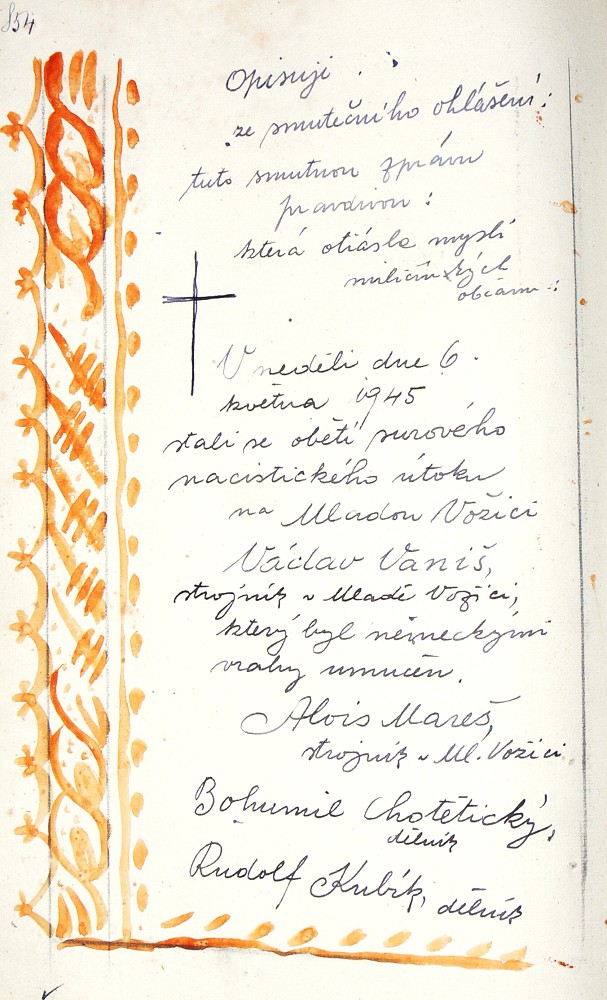 854
Opisuji
ze smutečního ohlášení:
tuto smutnou zprávu
pravdivou:
která otřásla myslí
občanů:
V neděli dne 6.
května 1945
stali se obětí surového
nacistického útoku
na Mladou Vožici
Václav Vaniš,
strojník v Mladé Vožici,
který byl německými
vrahy umučen.
Alois Mareš,
strojník v Ml. Vožici
Bohumil Chotětický,
dělník
Rudolf Kubík, dělník